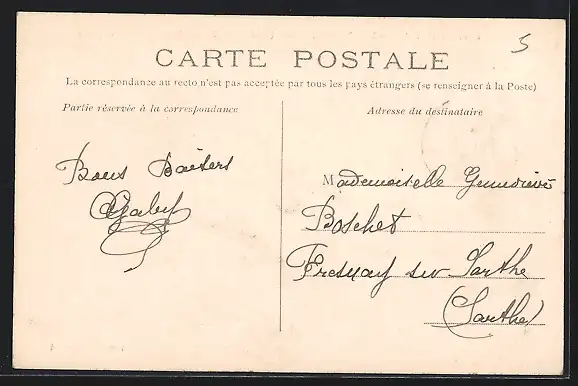 5
CARTE POSTALE
La correspondance au recto n'est pas acceptée par tous les pays étrangers (se renseigner à la Poste)
Partie réservée à la correspondance
Adresse du destinataire
Bons Baisers
Gaby
Mademoiselle Geneviève
Boschet
Fresnay sur Sarthe
(Sarthe)